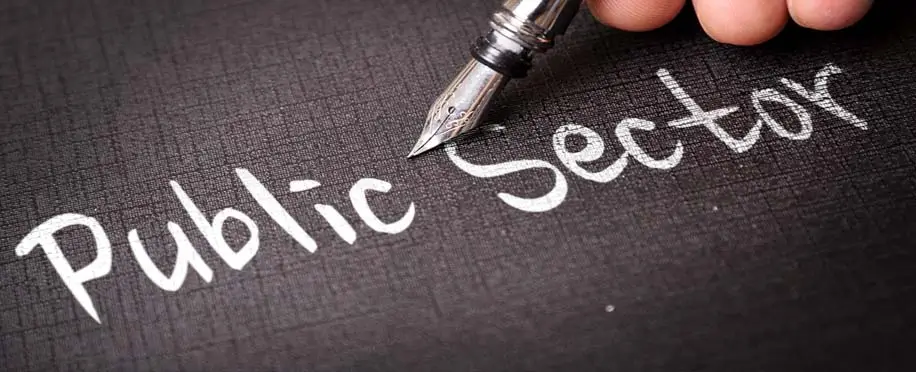 Public Sector